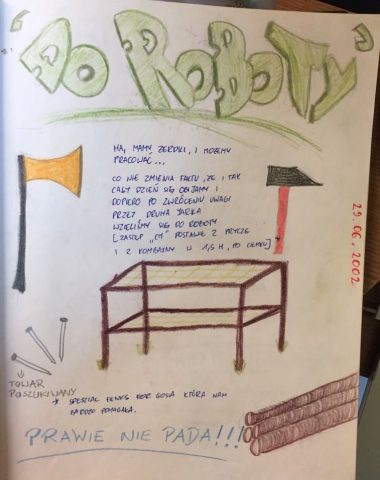 "DO ROBOTY"
HA, MAMY ŻERDKI, I MOŻEMY
PRACOWAĆ...
CO NIE ZMIENIA FAKTU, ŻE I TAK
CAŁY DZIEŃ SIĘ OBIJAMY I
DOPIERO PO ZWRÓCENIU UWAGI
PRZEZ DRUHA JARKA
WZIELIŚMY SIĘ DO ROBOTY
[ZASTĘP POSTAWIŁ 2 PRYCZE
I 2 KOMBAJNY W 1,5 H, PO CIEMKU]*
29.06.2002
TOWAR
POSZUKIWANY
* SPESZIAL FENKS FOR GOSIA KTÓRA NAM
BARDZO POMAGAŁA.
PRAWIE NIE PADA!!!